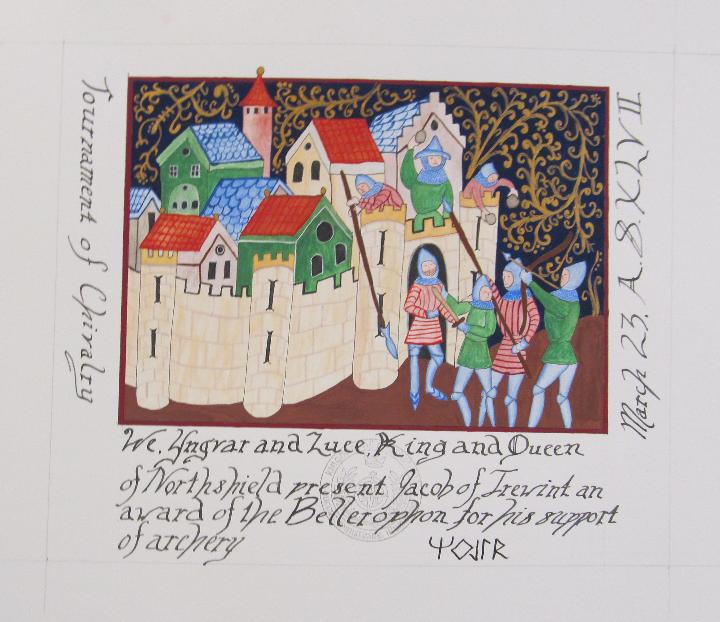 Tournament of Chivalry
March 23, A.S. XLVII
We, Yngvar and Luce, King and Queen
of Northshield present Jacob of Trewint an
award of the Bellerophon for his support
of archery